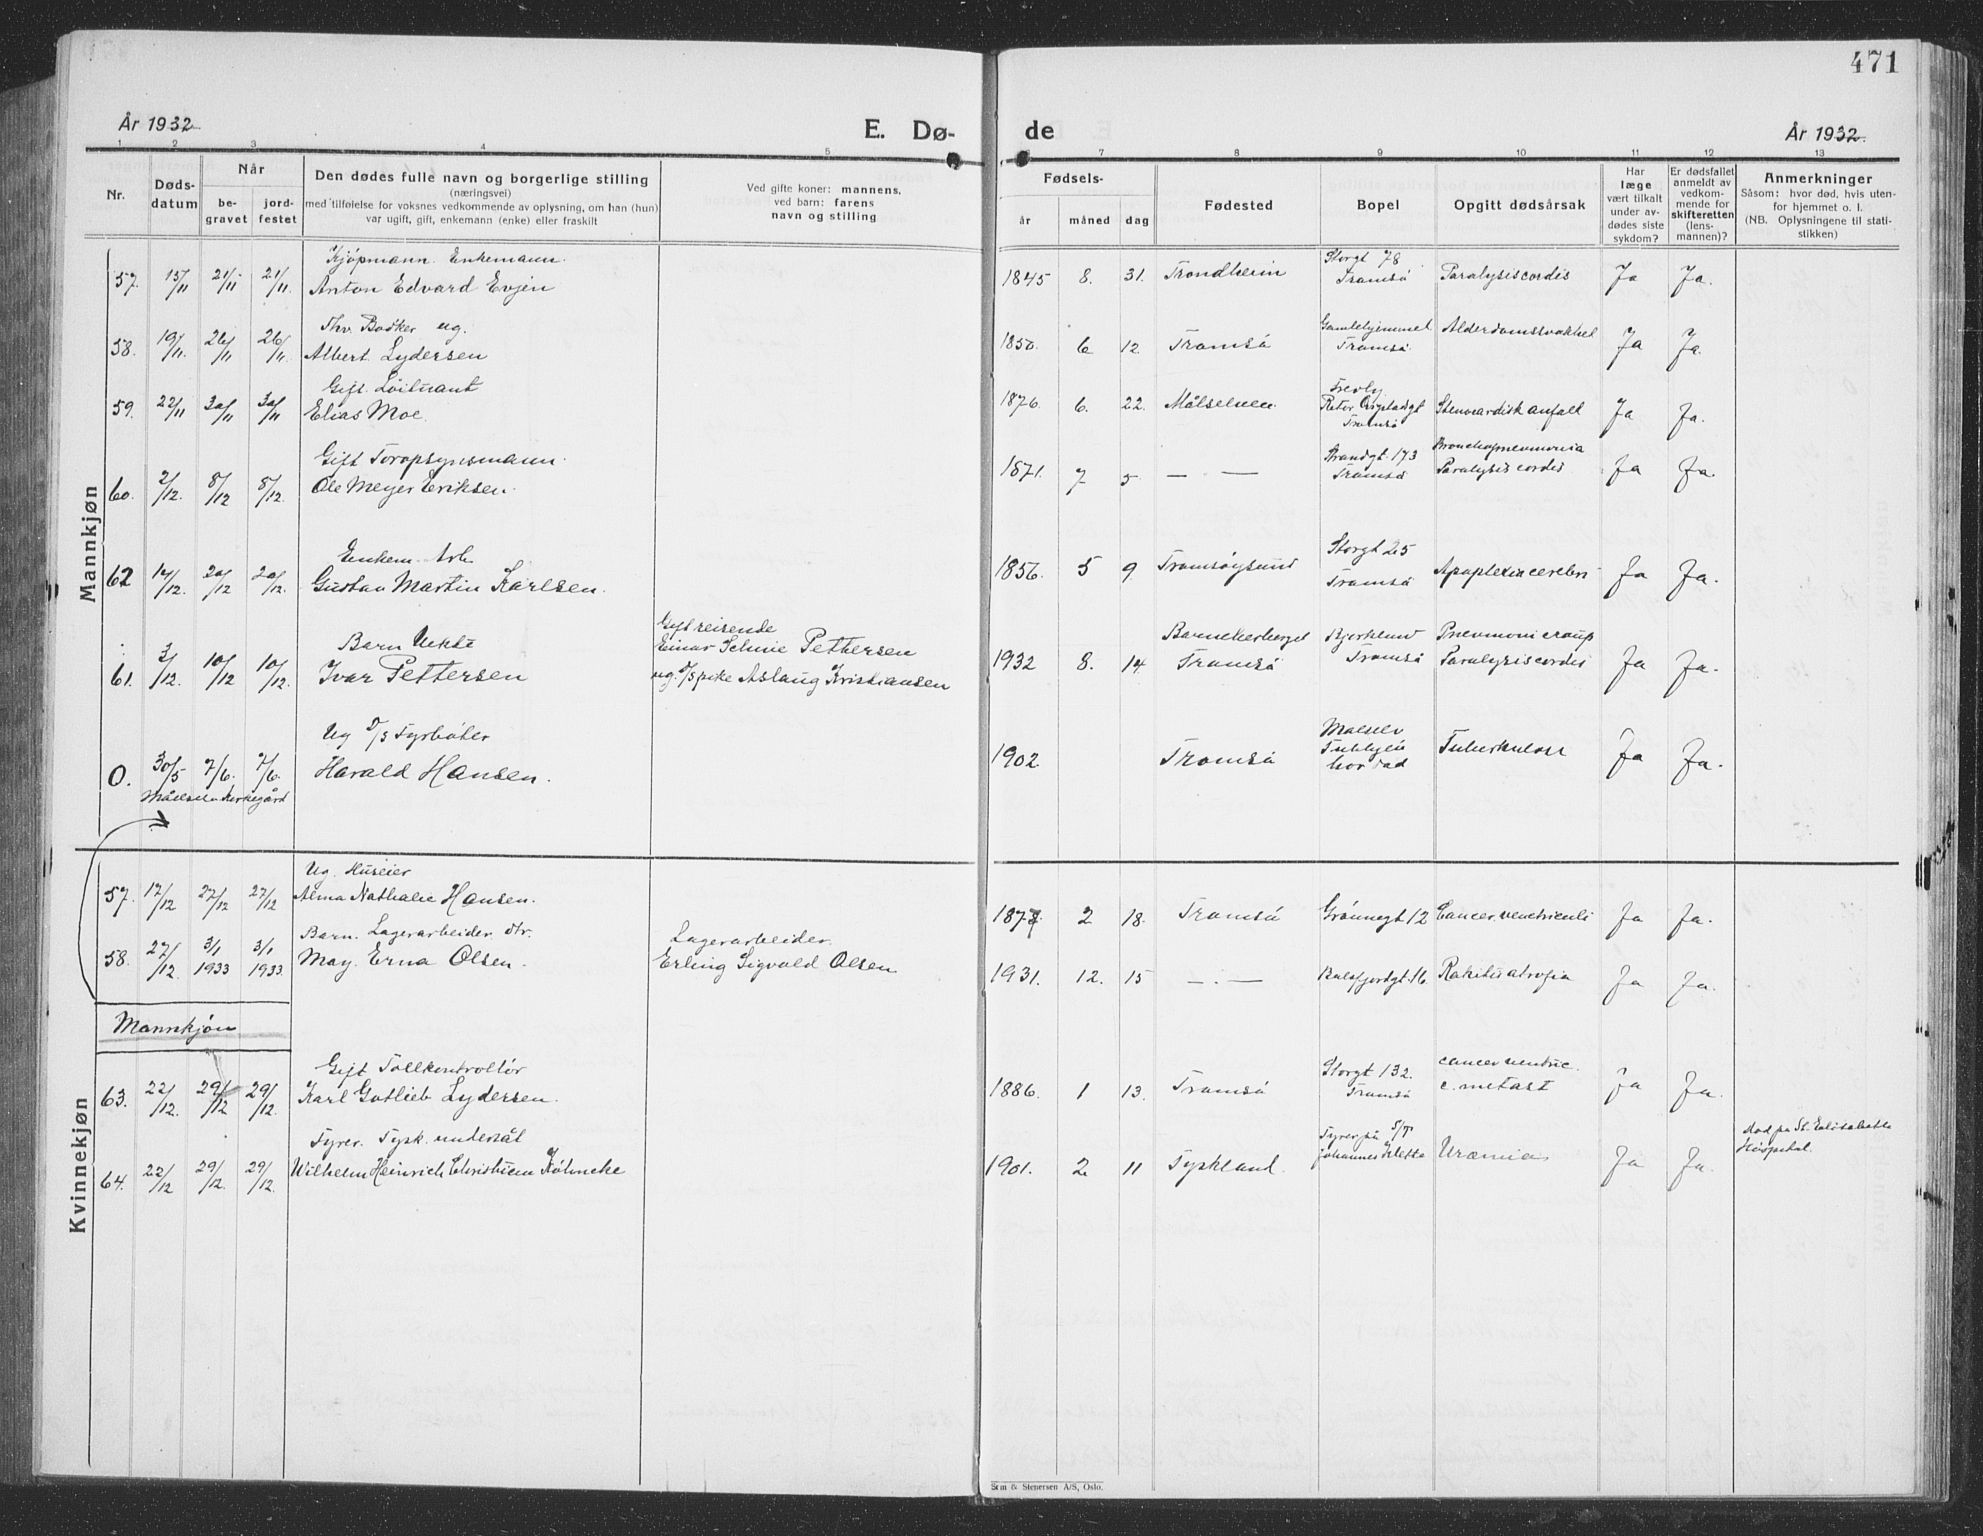 471
År 1932
E. Dø-
de
År 1932.
1 2 3 4 5 7 8 9 10 11 12 13
Nr.
Døds-
datum
Når
be-
gravet
jord-
festet
Den dødes fulle navn og borgerlige stilling
(næringsvei)
med tilføielse for voksnes vedkommende av oplysning, om han (hun)
var ugift, gift, enkemann (enke) eller fraskilt
Ved gifte koner: mannens,
ved barn: farens
navn og stilling
Fødsels-
år måned dag
Fødested
Bopel
Opgitt dødsårsak
Har
læge
vært tilkalt
under av-
dødes siste
sykdom?
Er dødsfallet
anmeldt av
vedkom-
mende for
skifteretten
(lens-
mannen)?
Anmerkninger
Såsom: hvor død, hvis uten-
for hjemmet o. l.
(NB. Oplysningene til stati-
stikken)
Mannkjøn
Kjøpmann. Enkemann.
57. 15/11 21/11 21/11. Anton Edvard Evjen
1845 8. 31. Trondheim
Storgt 78
Tromsö
Paralysis cordis
Ja Ja.
ug.
58. 19/11. 26/11 26/11. Albert Lydersen
1850. 6 12. Tromsö
Gamlehjemmet
Tromsö.
Ja Ja.
Gift. Löitnant
59. 22/11 30/11 30/11 Elias Moe.
1876. 6. 22. Målselven
Tromsö
Ja Ja.
Gift Toropsynsmann.
60. 2/12. 8/12 8/12. Ole Meyer Eriksen.
1871. 7 5 — —
Strandgt. 173
Tromsö
Bronchopneumonia
Paralysis cordis
Ja Ja.
Enkem. Arb.
62 14/12. 20/12 20/12. Gustav Martin Karlsen.
1856. 5 9 Tromsöysund
Storgt 25
Tromsö
Apoplexia cerebri
Ja Ja.
Barn Uekte
61. 3/12. 10/12 10/12. Ivar Pettersen
Gift reisende
Einar Pettersen
ug. Aslaug Kristiansen
1932 8. 14
Barneherberget
Tromsö
Tromsö
Pneumoni croup
Paralysis cordis
Ja Ja.
Ug D/S Fyrböter
0. 30/5 7/6. 7/6. Harald Hansen.
Målselv Kirkegård
1902 Tromsö
Målselv
Tuberkulose
Ja Ja.
Kvinnekjøn
Ug. Huseier
57. 17/12 27/12 27/12 Alma Nathalie Hansen.
187 2 18. Tromsö
Grönnegt 12
Cancer. ventriculi
Ja Ja.
Barn. Lagerarbeider dtr.
58. 27/12. 3/1 1933 3/1 1933. May. Erna Olsen.
Lagerarbeider.
Erling Sigvald Olsen
1931. 12. 15 —.—
Balsfjordgt. 16.
Rakitis atrofia
Ja Ja.
Mannkjön
Gift Tollkontrollör
63. 22/12. 29/12 29/12. Karl Gotlieb Lydersen.
1886. 1 13. Tromsö
Storgt 132.
Tromsö
cancer ventric.
c. metast
Ja Ja.
Fyrer. Tysk. undersåt
64. 22/12 29/12. 29/12. Wilhelm Heinrich Christian Köhncke
1901. 2 11 Tyskland.
Fyrer på S/T
Johannes
Uræmia
Ja Ja.
död på St. Elisabeths
Hospital.
& Stenersen A/S, Oslo.